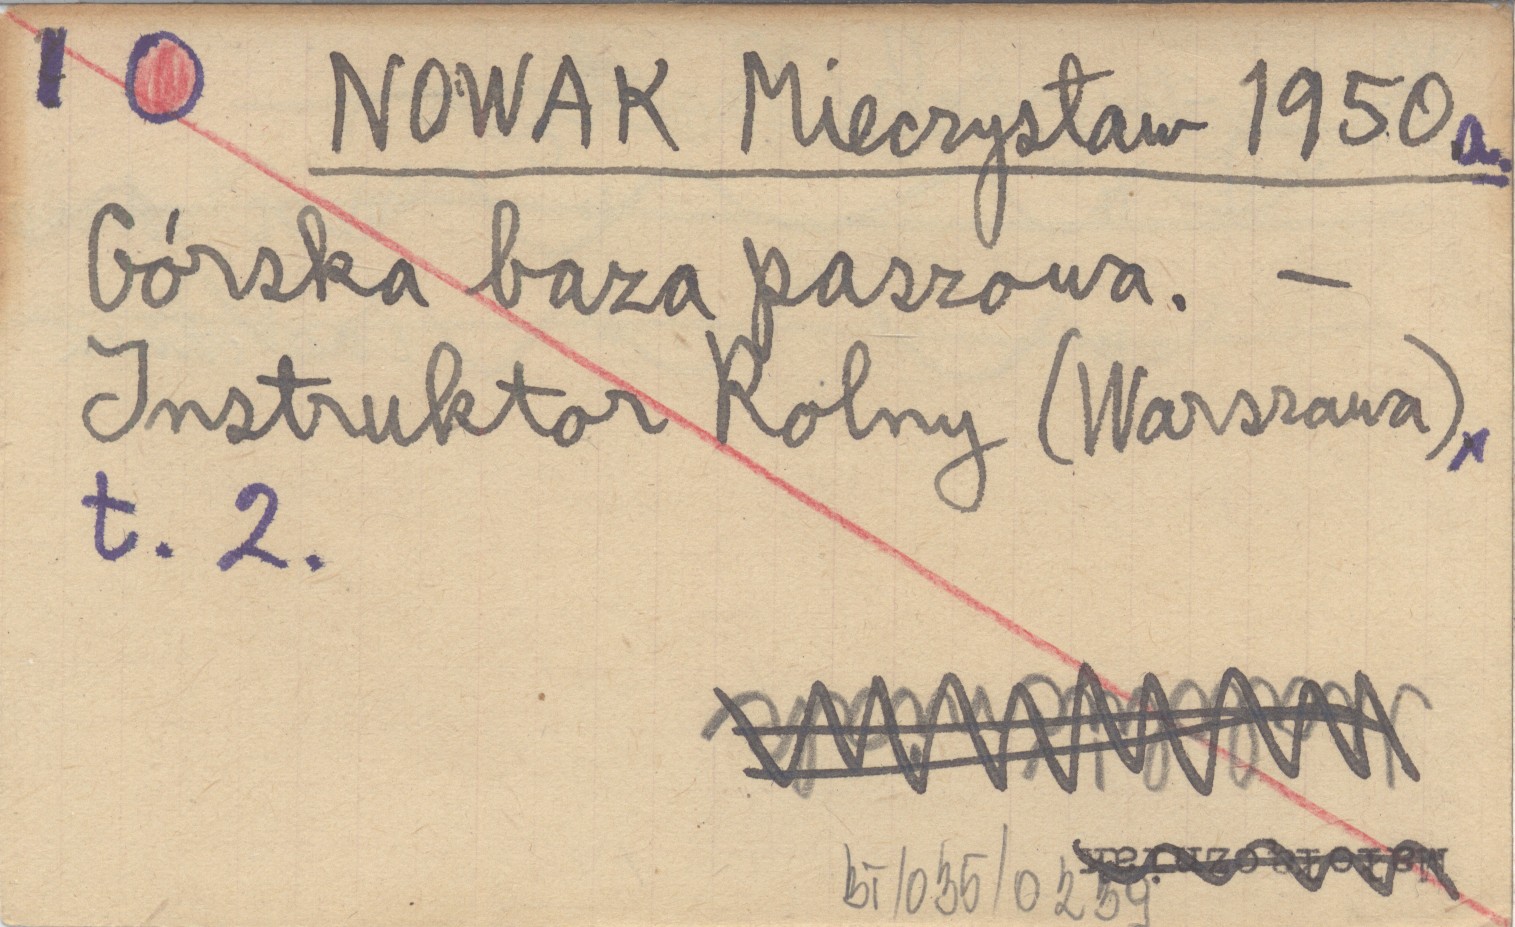 1 0 NOWAK Mieczysław 1950a.
Górska baza paszowa. –
Instruktor Rolny (Warszawa),
t. 2.